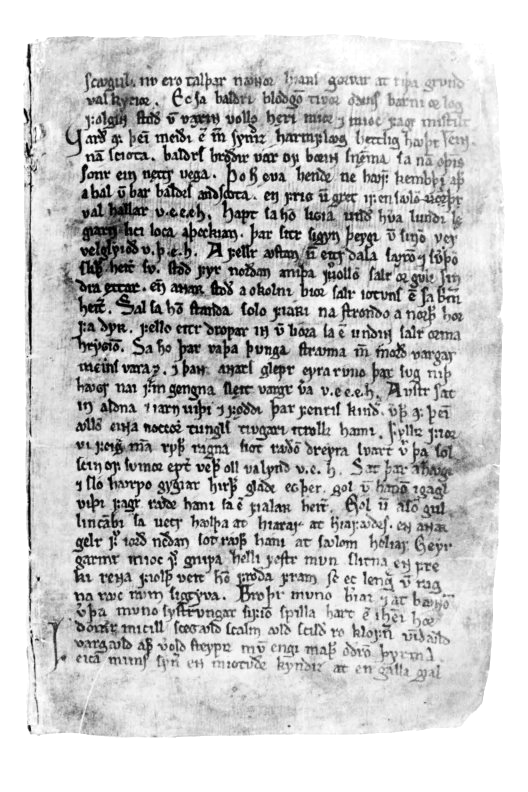 scogul. nv ero talþar nonnor herians gorvar at riþa grund
valkyrior. Ec sa baldri blodgom tivor odins barni or log
folgin stod ū vaxin vollo heri mior ⁊ mioc fagr mistilt
aͬð af þeī meidi ē m̄ syndiz harmflaug hettlig haþr
na sciota. baldrs broðir var of borin snemma sa nā oþins
sonr ein nettr vega. Þo h̄ eva hendr ne hafuþ kembþi aþ
a bal ū bar baldrs andscota. en frig ū gret i fensalō
val hallar v. e. e. h. Hapt sa hō ligia und hv̄a lundi
giarn liki loca aþeckian. þar sitr sigyn þeygi ū sinō ver
velglyiod v. þ. e. h. A fellr avstan ū eitrdala savrō ⁊ svþō
sliþ heitir sv. stod fyr nordan a niþa vollō salr or gulli sin
dra ettar. en anar stod a okolni bior salr iotuns
heit. Sal sa hō standa solo fiarri na strondo a norþr hor
fa dyr. fello eitr dropar in ū liora sa ē undin salr orma
hryggiō. Sa hō þar vaþa þunga strauma m̄ meinsvara
⁊ þann annars glepr eyra runo þar sug niþ
havgr nai frāgengna sleit vargr v̄a v. e. e. h. Austr sat
in aldna i iarn viþi ⁊ foddi þar fenris kindir. vþ af þeī
ollō eina noccorr tungls tiugari i trollz hami. Fylliz fior
vi feigra manna ryþr ragna siot rauðō dreyra svart v̄ þa sol
scin of sumor ept̄ veþr oll valynd v. e. h. Sat þar a havgi
⁊ slo havrpo gygiar hirþir gladr egþer. gol v̄ hanō i gagl
viþi fagr raudr hani sa ē fialar heit. Gol ū asō gul
lincābi sa vecr havlþa at hiarar at en anar
gelr f̄ iord nedan sot rauþr hani at savlom heliar. Geyr
garmr mioc f̄ gnipa helli festr mun slitna en fre
ki renna fiolþ veit hō froda fram se ec lengra ū rag
na rauc rōm sigtyva. Broþr muno beriaz ⁊ at bavnō
v̄þa muno systrungar sifiō spilla hart ē i heimi hor
domr mikill sceggavld scalm avld scildir ro klofnir vindavld
vargavld aþr verold steypiz mun engi maþr avdrō þyrma.
Leika mims synir en miotudr kyndiz at en galla gial